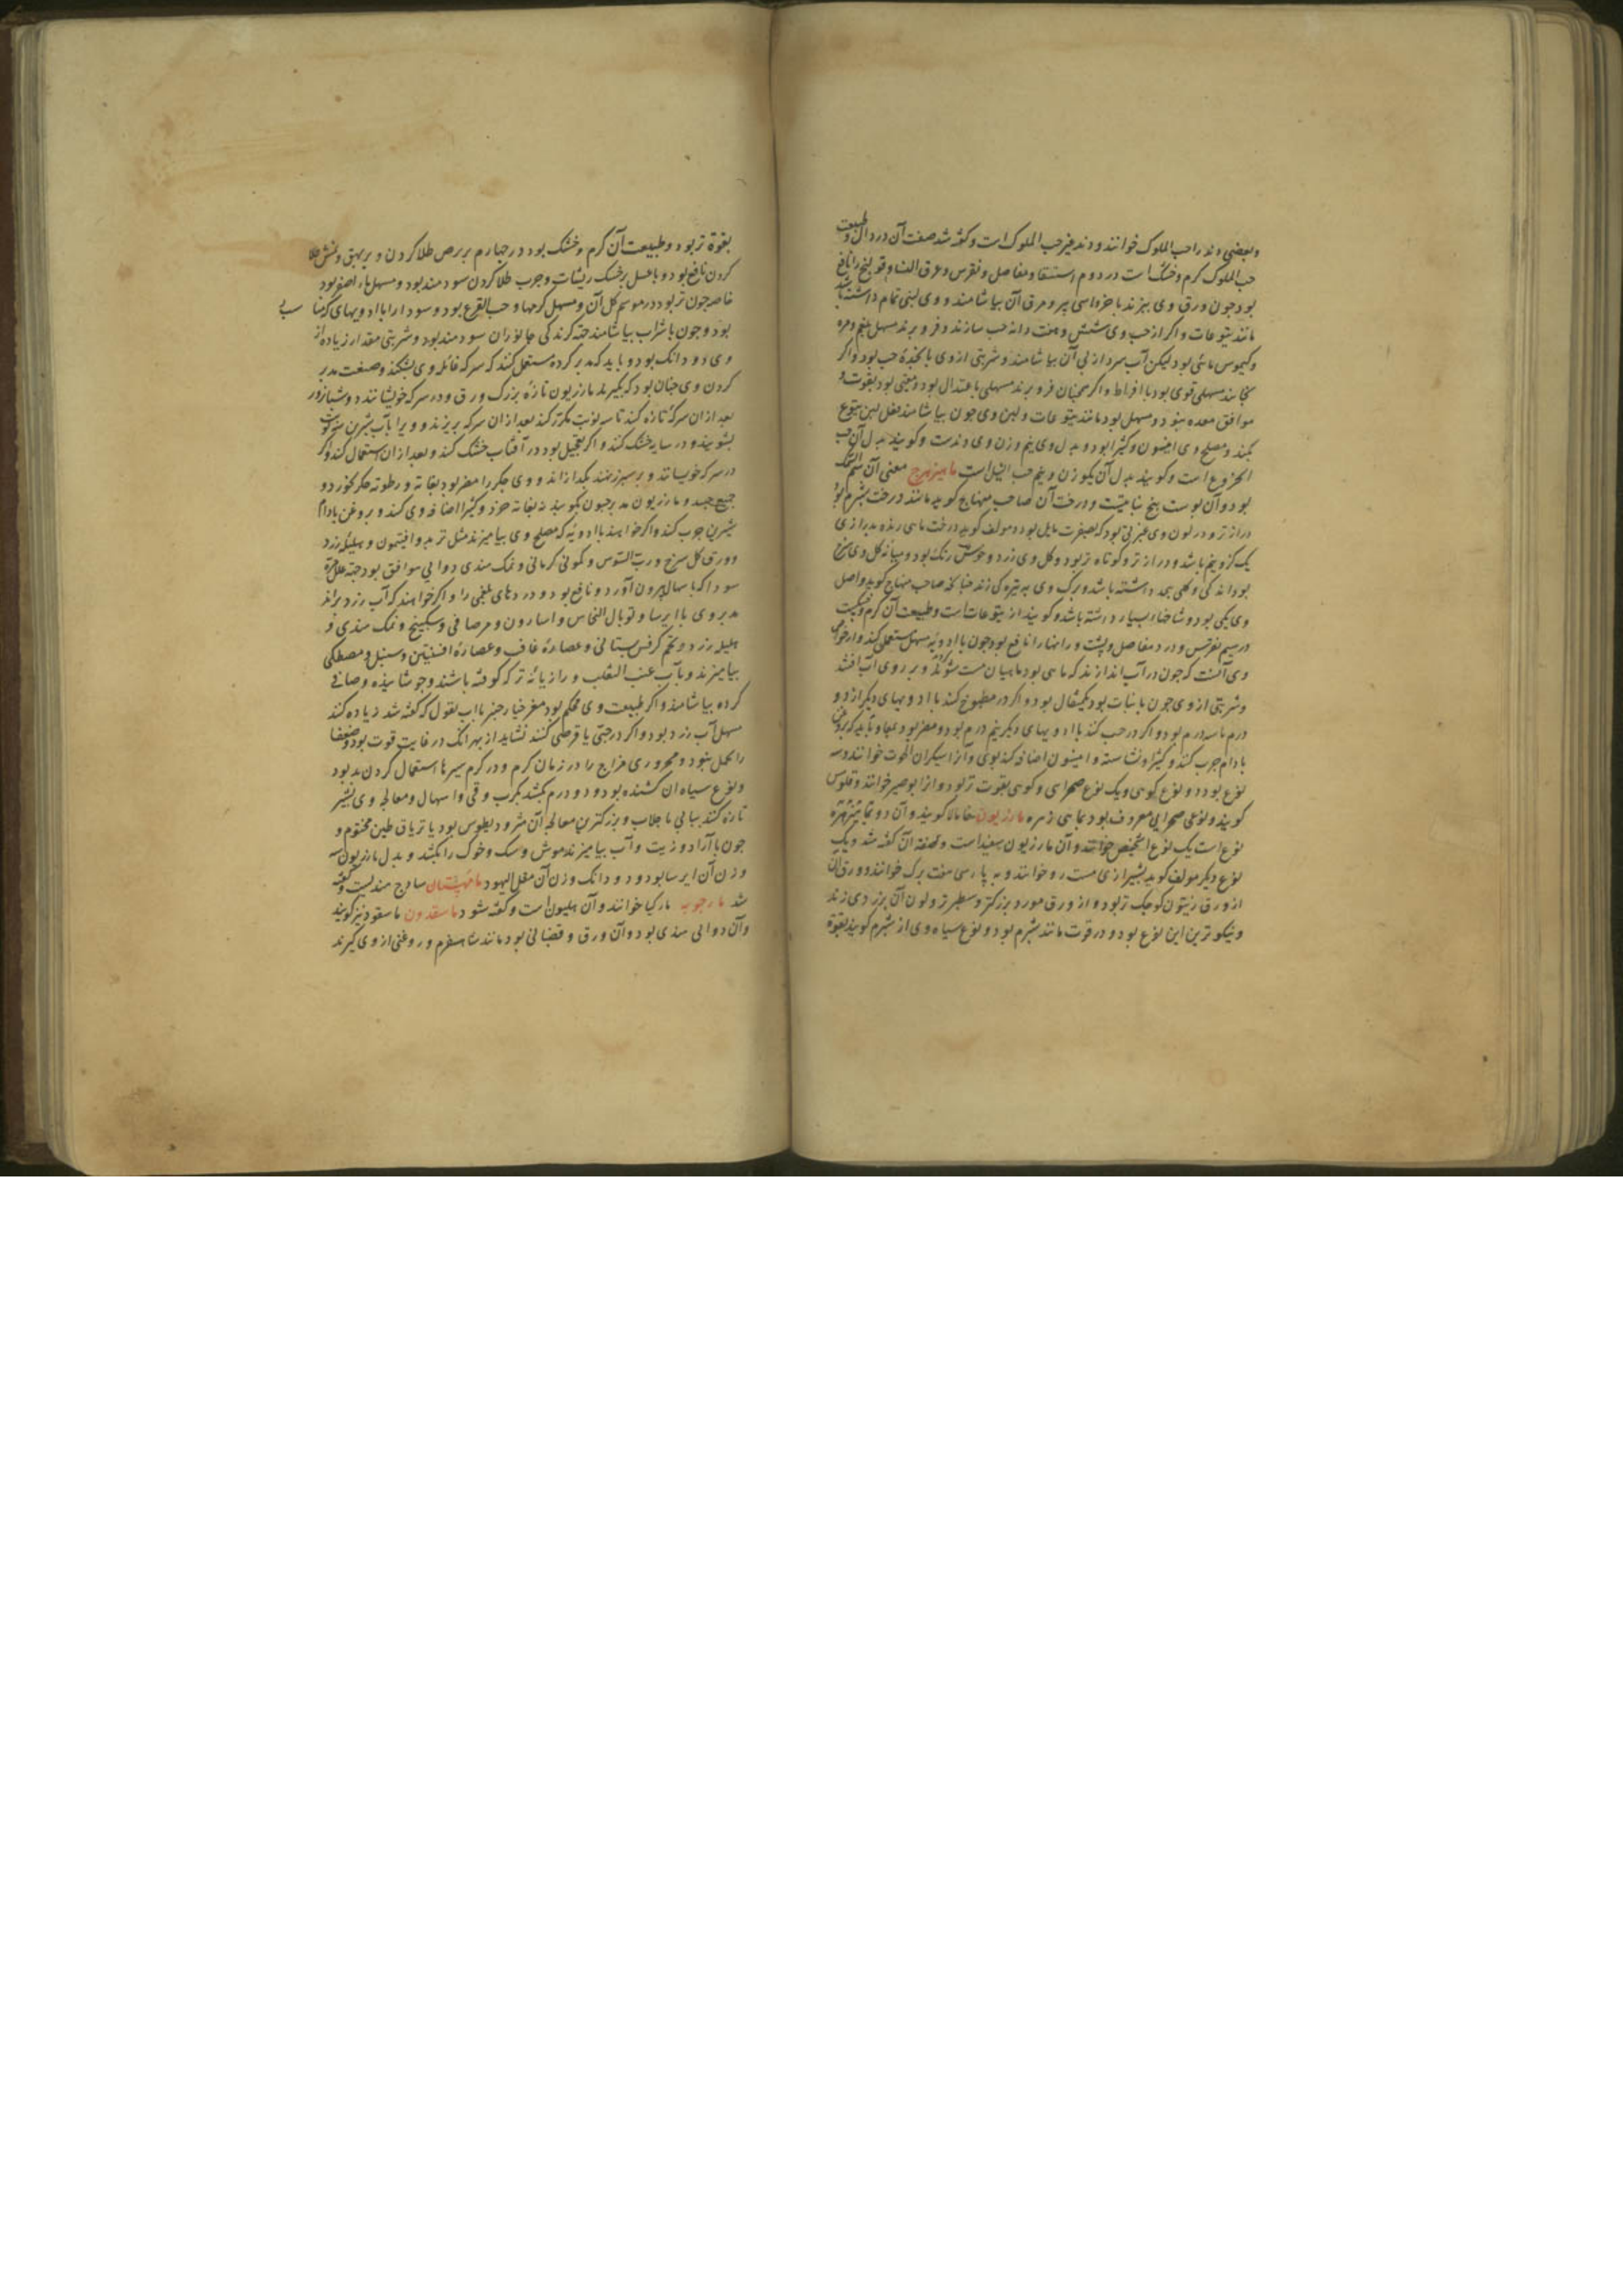 وبعضی دند را حب الملوک خوانند و دند غیر حب الملوک است و کفته شد صفت آن در دال و طبیعت
حب الملوک کرم و خشک است در دوم استسقا و مفاصل و نقرس و عرق النسا و قولنج را نافع
بود جون ورق وی بپزند با خروسی پیر و مرق آن بیاشامند و وی لبنی تمام داشته باشد
مانند یتوعات و اکر از حب وی شش و هفت دانه حب سازند و فرو برند مسهل بلغم و مره
وکیموس مائی بود لیکن آب سرد از پی آن بیاشامند و شربتی از وی پانجده حب بود و اکر
بخایند مسهلی قوی بود با افراط و اکر همجنان فرو برند مسهلی باعتدال بود و مقیی بود بقوت و
موافق معده نبود و مسهل بود مانند یتوعات و لبن وی جون بیاشامند فعل لبن یتوع
بکند و مصلح وی انیسون و کثیرا بود و بدل وی نیم وزن وی دندست و کویند بدل آن حب
الخروع است و کویند بدل آن یکوزن و نیم حب النیل است ماهیزهرج معنی آن سم السمک
بود و آن پوست بیخ نباتیست و درخت آن صاحب منهاج کوید مانند درخت شبرم بود
درازتر و در لون وی غبرتی بود که بصفرت مایل بود و مولف کوید درخت ماهی زهره بدرازی
یک کز و نیم باشد و درازتر و کوتاه تر بود و کل وی زرد و خوش رنک بود و میانه کل وی سرخ
بود اندکی و کلی بهم داشته باشد و برک وی به تیره کی زند جنانکه صاحب منهاج کوید و اصل
وی یکی بود و شاخها بسیار داشته باشد و کویند از یتوعات است و طبیعت آن کرم و خشکست
در سیم نقرس و درد مفاصل و پشت و رانها را نافع بود جون با ادویه مسهل مستعمل کنند و از خواص
وی آنست که جون در آب اندازند که ماهی بود ماهیان مست شوند و بر روی آب افتند
وشربتی از وی جون با نبات بود یکمثقال بود و اکر در مطبوخ کنند با ادویهای دیکر از دو
درم تا سه درم بود و اکر در حب کنند با ادویهای دیکر نیم درم بود و مضر بود بمعا و باید که بروغن
بادام جرب کنند و کثیرا و نشاسته و انیسون اضافه کنند بوی و آنرا سیکران الحوت خوانند و سه
نوع بود دو نوع کوهی و یک نوع صحرایی و کوهی بقوت تر بود و آنرا بوصیر خوانند و قلومس
کویند و نوعی صحرایی معروف بود بماهی زهره مازریون خامالا کویند و آن دو
نوع است یک نوع اشخیص خوانند و آن مازریون سفید است و صفت آن کفته شد و یک
نوع دیکر مولف کوید بشیرازی مست رو خوانند و به پارسی هفت برک خوانند و ورق آن
از ورق زیتون کوجک تر بود و از ورق مورد بزرکتر و سطبرتر و لون آن بزردی زند
و نیکوترین این نوع بود و در قوت مانند شبرم بود و نوع سیاه وی از شبرم کویند بقوة
بقوة تر بود و طبیعت آن کرم و خشک بود در جهارم بر برص طلا کردن و بر بهق و نمش طلا
کردن نافع بود و با عسل بر خشک ریشات و جرب طلا کردن سودمند بود و مسهل ماء اصفر بود
خاصه جون تر بود در موسم کل آن و مسهل کرمها و حب القرع بود و سودا را با ادویهای
بود و جون با شراب بیاشامند جهة کزندکی جانوران سودمند بود و شربتی مقدار زیاده از
وی دو دانک بود و باید که مدبر کرده مستعمل کنند که سرکه غائله وی بشکند و صنعت مدبر
کردن وی جنان بود که بکیرند مازریون تازه بزرک ورق و در سرکه خویسانند دو شبانروز
بعد از ان سرکه تازه کنند تا سه نوبت مکرر کنند بعد از ان سرکه بریزند و ویرا بآب شیرین
بشویند و در سایه خشک کنند و اکر تعجیل بود در آفتاب خشک کنند و بعد از ان استعمال کنند و اکر
در سرکه خویسانند و بر سپرز نهند بکدازاند و وی جکر را مضر بود بغایة و رطوبه جکر بخورد و
جمیع جسد و مازریون مدبر جون بکویند نه بغایة خرد و کثیرا اضافه وی کنند و بروغن بادام
شیرین جرب کنند و اکر خواهند با ادویه که مصلح وی بیامیزند مثل تربد و افتیمون و هلیله زرد
و ورق کل سرخ و رب السوس و کمونی کرمانی و نمک هندی دوایی موافق بود جهة علل مره
سودا که باسهال بیرون آورد و نافع بود دردهای بلغمی را و اکر خواهند که آب زرد براند
مدبر وی با ایرسا و توبال النحاس و اسارون و مر صافی و سکبینج و نمک هندی و
هلیله زرد و تخم کرفس بستانی و عصاره غافت و عصاره افسنتین و سنبل و مصطکی
بیامیزند و بآب عنب الثعلب و رازیانه تر که کوفته باشند و جوشانیده و صافی
کرده بیاشامند و اکر طبیعت وی محکم بود مغز خیار جنبر با آب بقول که کفته شد زیاده کنند
مسهل آب زرد بود و اکر در حبی یا قرصی کنند نشاید از بهر آنک در غایت قوت بود و ضعفا
را تحمل نبود و محروری مزاج را در زمان کرم و در کرم سیرها استعمال کردن بد بود
و نوع سیاه آن کشنده بود دو درم بکشد بکرب و قی و اسهال و معالجه وی بشیر
تازه کنند پیاپی با جلاب و بزرکترین معالجه آن مثرودیطوس بود یا تریاق طین مختوم و
جون با آرد و زیت و آب بیامیزند موش و سک و خوک را بکشد و بدل مازریون سه
وزن آن ایرسا بود و دو دانک وزن آن مقل الیهود مافیشتان ساذج هندیست و کفته
شد مارجوبه مارکیا خوانند و آن هلیون است و کفته شود ماسقدون ماسقود نیز کویند
وآن دوایی هندی بود و آن ورق و قضبانی بود مانند شاهسفرم و روغنی از وی کیرند